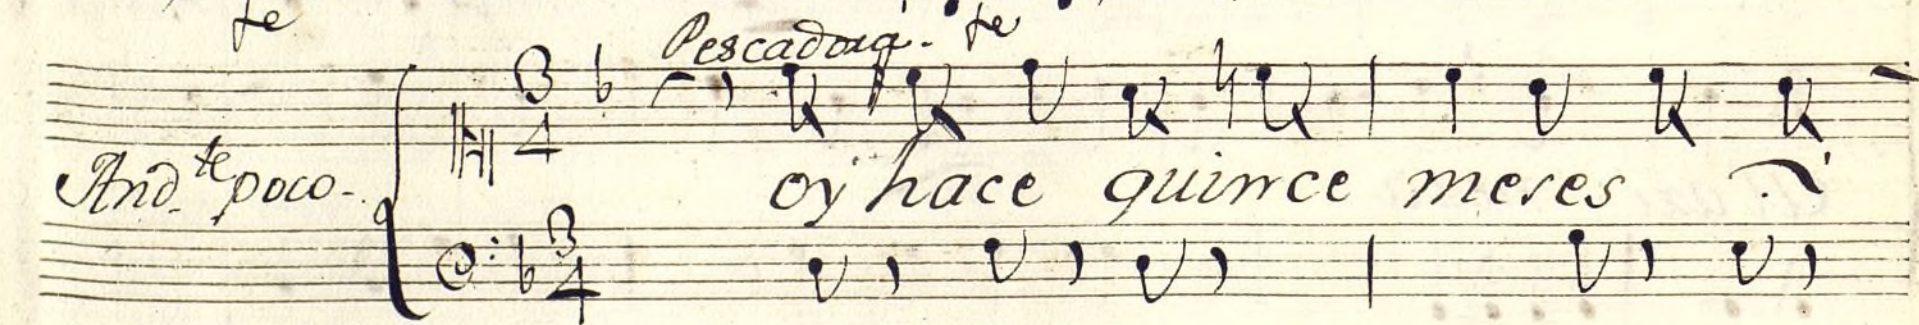 fe
Pescadora. fe
3
4
And.te poco.
oy hace quince meses
3
4